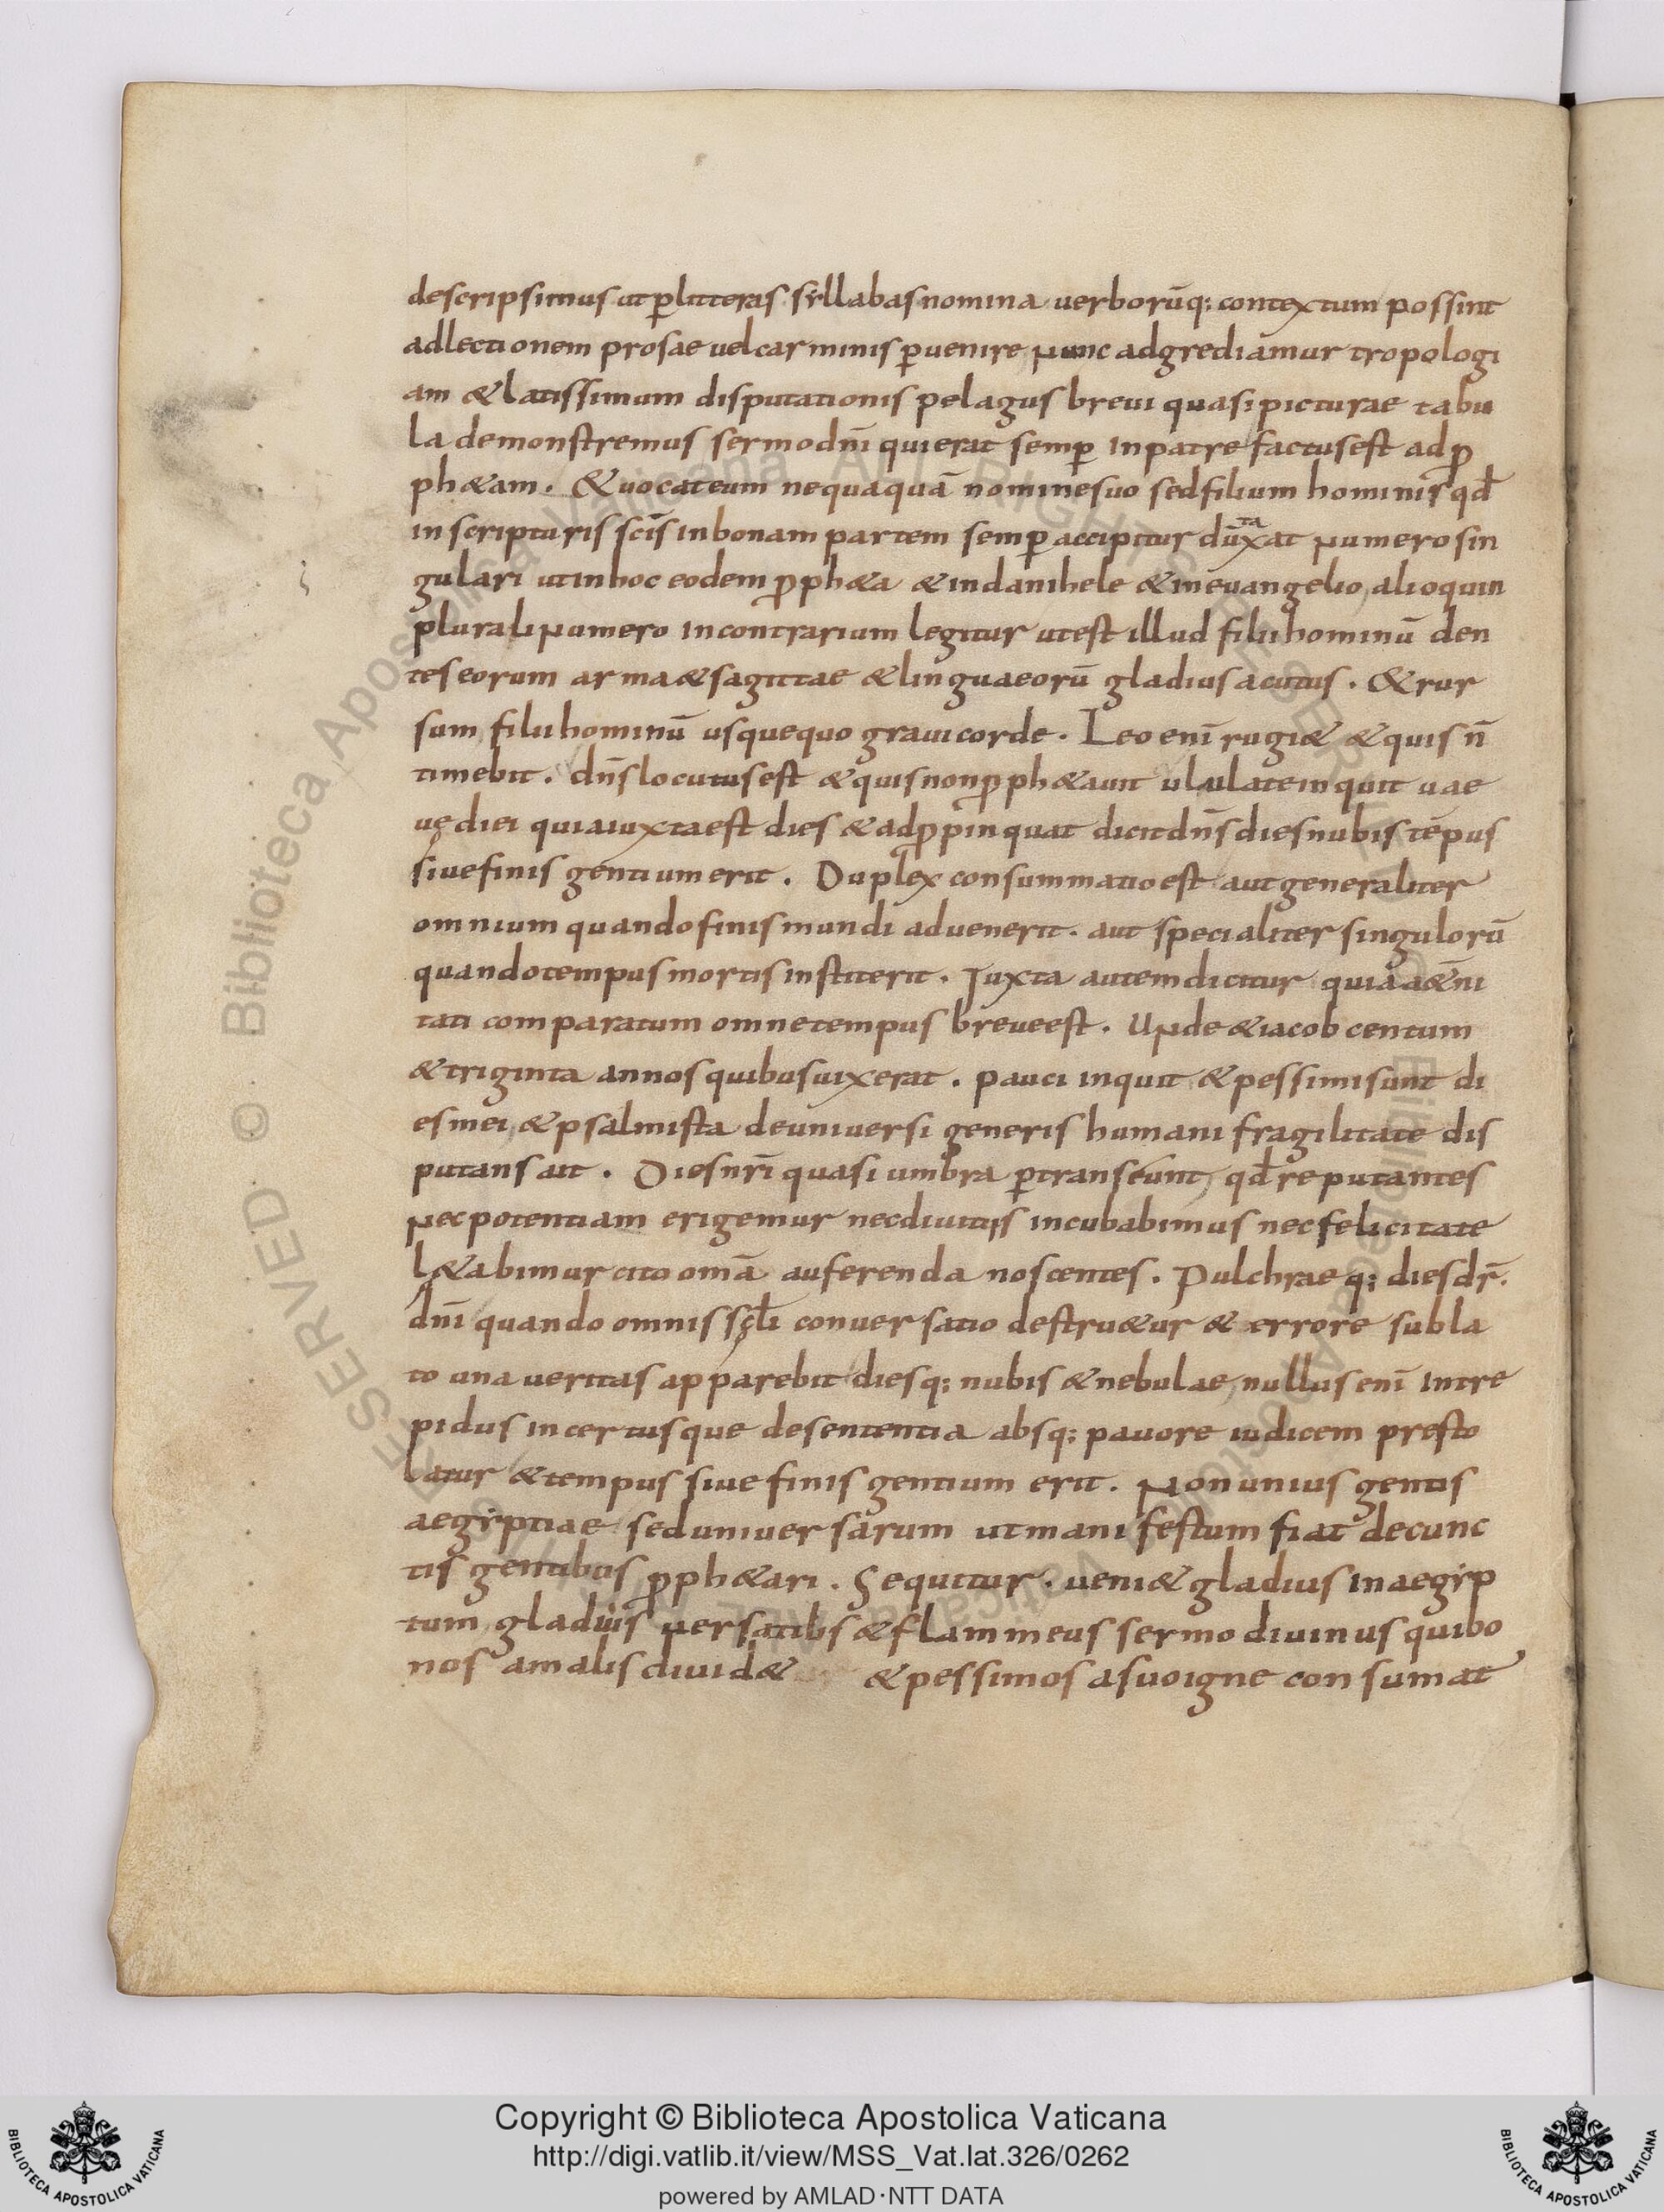 descripsimus ut p̱ litteras syllabas nomina uerborūq; contextum possint
ad lectionem prosae uel carminis p̱uenire nunc adgrediamur tropologi
am & latissimum disputationis pelagus breui quasi picturae tabu
la demonstremus sermo dn̄i qui erat semp̱ in patre factus est ad ꝓ
ph&am. & uocat eum nequaquā nomine suo sed filium hominis qd̄
in scripturis sc̄is in bonam partem semp̱ accipitur dūtaxat numero sin
gulari ut in hoc eodem ꝓph&a & in danihele & in euangelio, alioquin
plurali numero in contrarium legitur ut est illud filii hominū den
tes eorum arma & sagittae & linguae orū gladius acutus. & rur
sum filii hominū usquequo graui corde. Leo eni̅ rugi& & quis n̄
timebit. dn̄s locutus est & quis non ꝓph&auit ululate inquit uae
uę diei quia iuxta est dies & adꝓpinquat dicit dn̄s dies nubis tēpus
siue finis gentium erit. Duplex consummatio est aut generaliter
omnium quando finis mundi aduenerit. aut specialiter singulorū
quando tempus mortis institerit. Iuxta autem dicitur quia a&̄ni
tati comparatum omne tempus breue est. Unde & iacob centum
& triginta annos quibus uixerat. pauci inquit & pessimi sunt di
es mei, & psalmista de uniuersi generis humani fragilitate dis
putans ait. Dies nr̄i quasi umbra p̱transeunt, qd̄ reputantes
nec potentiam erigemur nec diuitiis incubabimus nec felicitate
l&abimur cito om̄a auferenda noscentes. Pulchrae q; dies dr̄.
dn̄i quando omnis sc̨l̄i conuersatio destru&ur & errore subla
to una ueritas apparebit dies q; nubis & nebulae, nullus eni̅ intre
pidus incertusque de sententia absq; pauore iudicem presto
latur & tempus siue finis gentium erit. Non unius gentis
aegyptiae sed uniuersarum ut manifestum fiat de cunc
tis gentibus ꝓph&ari. Sequitur. ueni& gladius in aegyp
tum, gladiis uersatibs & flammeus sermo diuinus qui bo
nos a malis diuid& & pessimos a suo igne consumat
Copyright © Biblioteca Apostolica Vaticana
http://digi.vatlib.it/view/MSS_Vat.lat.326/0262
powered by AMLAD·NTT DATA
BIBLIOTECA APOSTOLICA VATICANA
BIBLIOTECA APOSTOLICA VATICANA